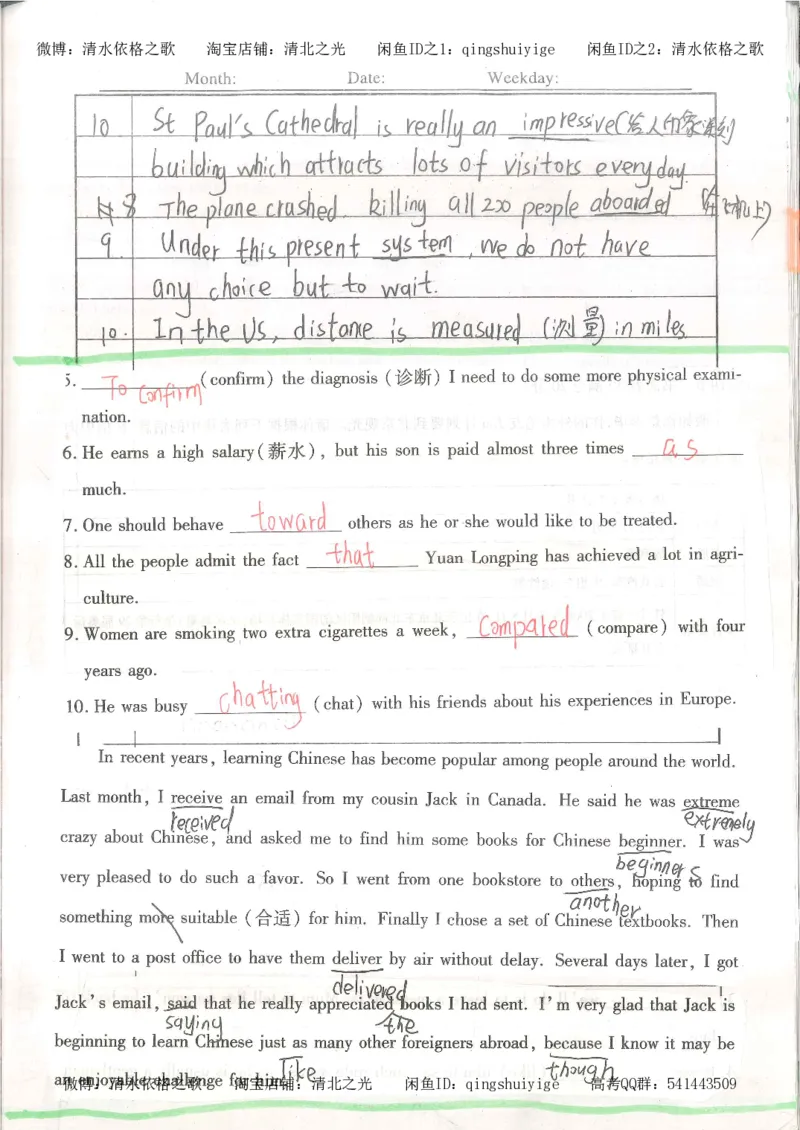 微博：清水依格之歌 淘宝店铺：清北之光 闲鱼ID之1：qingshuiyige 闲鱼ID之2：清水依格之歌
Month: Date: Weekday:
10 St Paul's Cathedral is really an impressive(给人印象深刻
building which attracts lots of visitors everyday.
8 The plane crashed. killing all 200 people aboarded (在飞机上)
9 Under this present system, we do not have
any choice but to wait.
10. In the US, distane is measured (测量) in miles
5. To confirm (confirm) the diagnosis (诊断) I need to do some more physical exami-
nation.
6. He earns a high salary(薪水), but his son is paid almost three times as
much.
7. One should behave toward others as he or she would like to be treated.
8. All the people admit the fact that Yuan Longping has achieved a lot in agri-
culture.
9. Women are smoking two extra cigarettes a week, Compared (compare) with four
years ago.
10. He was busy chatting (chat) with his friends about his experiences in Europe.
In recent years, learning Chinese has become popular among people around the world.
Last month, I receive an email from my cousin Jack in Canada. He said he was extreme
received extremely
crazy about Chinese, and asked me to find him some books for Chinese beginner. I was
beginners
very pleased to do such a favor. So I went from one bookstore to others, hoping to find
another
something more suitable (合适) for him. Finally I chose a set of Chinese textbooks. Then
I went to a post office to have them deliver by air without delay. Several days later, I got
delivered
Jack's email, said that he really appreciated books I had sent. I'm very glad that Jack is
saying the
beginning to learn Chinese just as many other foreigners abroad, because I know it may be
like though
an enjoyable challenge for him.
微博：清水依格之歌 淘宝店铺：清北之光 闲鱼ID：qingshuiyige 高考QQ群：541443509